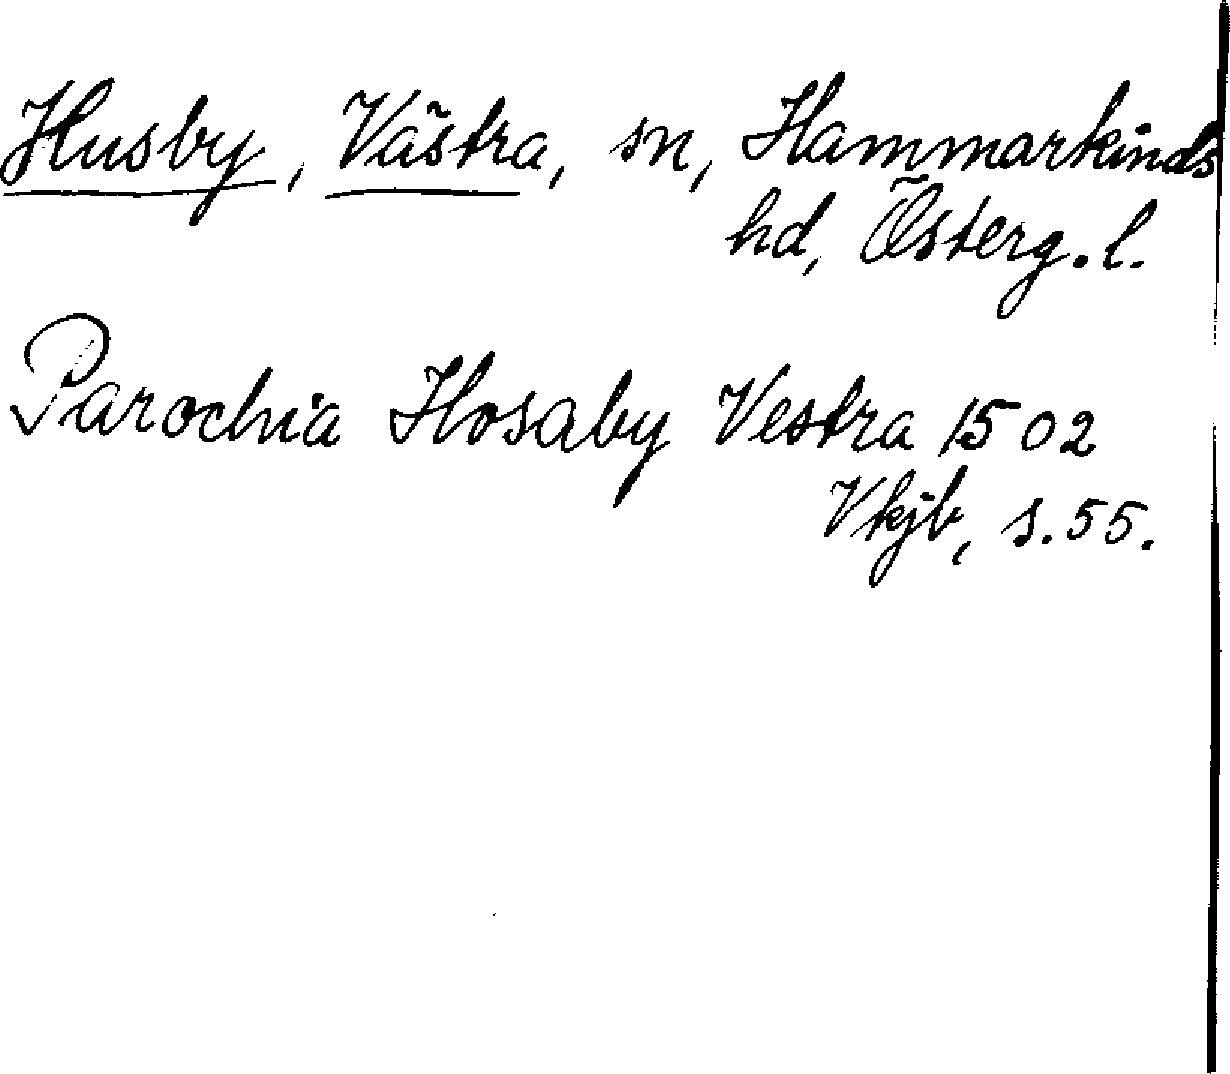 Husby, Västra, sn, Hammarkinds
hd, Österg. l.
Parochia Hosaby Vestra 1502
Vkjb, s. 55.